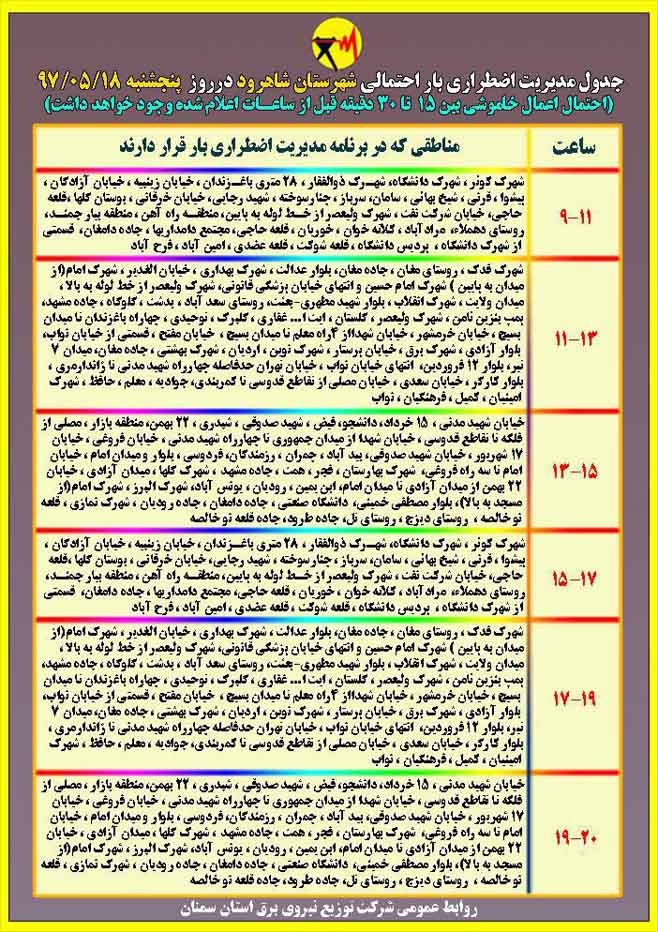 جدول مدیریت اضطراری بار احتمالی شهرستان شاهرود درروز پنجشنبه ۹۷/۰۵/۱۸
(احتمال اعمال خاموشی بین ۱۵ تا ۳۰ دقیقه قبل از ساعات اعلام شده وجود خواهد داشت)
ساعت
مناطقی که در برنامه مدیریت اضطراری بار قرار دارند
۹-۱۱
شهرک کوثر ، شهرک دانشگاه، شهرک ذوالفقار ، ۲۸ متری باغزندان ، خیابان زینبیه ، خیابان آزادگان ،
پیشوا ، قرنی ، شیخ بهائی ، سامان، سرباز ، چنارسوخته ، شهید رجایی، خیابان خرقانی ، بوستان گلها ،قلعه
حاجی، خیابان شرکت نفت ، شهرک ولیعصر از خط لوله به پایین، منطقه راه آهن ، منطقه بیار جمند،
روستای دهملاء، مرادآباد ، کلاته خوان ، خوریان ، قلعه حاجی، مجتمع دامداریها ، جاده دامغان، قسمتی
از شهرک دانشگاه ، پردیس دانشگاه ، قلعه شوکت ، قلعه عضدی ، امین آباد ، فرح آباد
۱۱-۱۳
شهرک فدک ، روستای مغان ، جاده مغان، بلوار عدالت ، شهرک بهداری ، خیابان الغدیر ، شهرک امام(از
میدان به پایین ) شهرک امام حسین و انتهای خیابان پزشکی قانونی، شهرک ولیعصر از خط لوله به بالا ،
میدان ولایت ، شهرک انقلاب ، بلوار شهید مطهری-بعثت، روستای سعد آباد ، بدشت ، گلوگاه ، جاده مشهد،
پمپ بنزین ثامن ، شهرک ولیعصر ، گلستان ، آیت ا... غفاری ، گلبرگ ، توحیدی ، چهارراه باغزندان تا میدان
بسیج ، خیابان خرمشهر ، خیابان شهدااز ۴راه معلم تا میدان بسیج ، خیابان مفتح ، قسمتی از خیابان نواب،
بلوار آزادی ، شهرک برق ، خیابان پرستار ، شهرک نوین ، اردیان ، شهرک بهشتی ، جاده مغان، میدان ۷
تیر، بلوار ۱۲ فروردین، انتهای خیابان نواب ، خیابان تهران حدفاصله چهارراه شهید مدنی تا ژاندارمری ،
بلوار کارگر ، خیابان سعدی ، خیابان مصلی از تقاطع قدوسی تا کمربندی، جوادیه ، معلم ، حافظ ، شهرک
امینیان ، کمیل ، فرهنگیان ، نواب
۱۳-۱۵
خیابان شهید مدنی ، ۱۵ خرداد، دانشجو، فیض ، شهید صدوقی ، شیدری ، ۲۲ بهمن، منطقه بازار ، مصلی از
فلکه تا تقاطع قدوسی ، خیابان شهدا از میدان جمهوری تا چهارراه شهید مدنی ، خیابان فروغی ، خیابان
۱۷ شهریور ، خیابان شهید صدوقی، بید آباد ، چمران ، رزمندگان، فردوسی ، بلوار و میدان امام ، خیابان
امام تا سه راه فروغی، شهرک بهارستان ، فجر ، همت ، جاده مشهد ، شهرک گلها ، میدان آزادی ، خیابان
۲۲ بهمن از میدان آزادی تا میدان امام، ابن یمین ، رودیان ، یونس آباد، شهرک البرز ، شهرک امام(از
مسجد به بالا)، بلوار مصطفی خمینی، دانشگاه صنعتی ، جاده دامغان ، جاده رودیان ، شهرک نمازی ، قلعه
نو خالصه ، روستای دیزج ، روستای تل، جاده طرود ، جاده قلعه نو خالصه
۱۵-۱۷
شهرک کوثر ، شهرک دانشگاه، شهرک ذوالفقار ، ۲۸ متری باغزندان ، خیابان زینبیه ، خیابان آزادگان ،
پیشوا ، قرنی ، شیخ بهائی ، سامان، سرباز ، چنارسوخته ، شهید رجایی، خیابان خرقانی ، بوستان گلها ،قلعه
حاجی، خیابان شرکت نفت ، شهرک ولیعصر از خط لوله به پایین، منطقه راه آهن ، منطقه بیار جمند،
روستای دهملاء، مرادآباد ، کلاته خوان ، خوریان ، قلعه حاجی، مجتمع دامداریها ، جاده دامغان، قسمتی
از شهرک دانشگاه ، پردیس دانشگاه ، قلعه شوکت ، قلعه عضدی ، امین آباد ، فرح آباد
۱۷-۱۹
شهرک فدک ، روستای مغان ، جاده مغان، بلوار عدالت ، شهرک بهداری ، خیابان الغدیر ، شهرک امام(از
میدان به پایین ) شهرک امام حسین و انتهای خیابان پزشکی قانونی، شهرک ولیعصر از خط لوله به بالا ،
میدان ولایت ، شهرک انقلاب ، بلوار شهید مطهری-بعثت، روستای سعد آباد ، بدشت ، گلوگاه ، جاده مشهد،
پمپ بنزین ثامن ، شهرک ولیعصر ، گلستان ، آیت ا... غفاری ، گلبرگ ، توحیدی ، چهارراه باغزندان تا میدان
بسیج ، خیابان خرمشهر ، خیابان شهدااز ۴راه معلم تا میدان بسیج ، خیابان مفتح ، قسمتی از خیابان نواب،
بلوار آزادی ، شهرک برق ، خیابان پرستار ، شهرک نوین ، اردیان ، شهرک بهشتی ، جاده مغان، میدان ۷
تیر، بلوار ۱۲ فروردین، انتهای خیابان نواب ، خیابان تهران حدفاصله چهارراه شهید مدنی تا ژاندارمری ،
بلوار کارگر ، خیابان سعدی ، خیابان مصلی از تقاطع قدوسی تا کمربندی، جوادیه ، معلم ، حافظ ، شهرک
امینیان ، کمیل ، فرهنگیان ، نواب
۱۹-۲۰
خیابان شهید مدنی ، ۱۵ خرداد، دانشجو، فیض ، شهید صدوقی ، شیدری ، ۲۲ بهمن، منطقه بازار ، مصلی از
فلکه تا تقاطع قدوسی ، خیابان شهدا از میدان جمهوری تا چهارراه شهید مدنی ، خیابان فروغی ، خیابان
۱۷ شهریور ، خیابان شهید صدوقی، بید آباد ، چمران ، رزمندگان، فردوسی ، بلوار و میدان امام ، خیابان
امام تا سه راه فروغی، شهرک بهارستان ، فجر ، همت ، جاده مشهد ، شهرک گلها ، میدان آزادی ، خیابان
۲۲ بهمن از میدان آزادی تا میدان امام، ابن یمین ، رودیان ، یونس آباد، شهرک البرز ، شهرک امام(از
مسجد به بالا)، بلوار مصطفی خمینی، دانشگاه صنعتی ، جاده دامغان ، جاده رودیان ، شهرک نمازی ، قلعه
نو خالصه ، روستای دیزج ، روستای تل، جاده طرود ، جاده قلعه نو خالصه
روابط عمومی شرکت توزیع نیروی برق استان سمنان